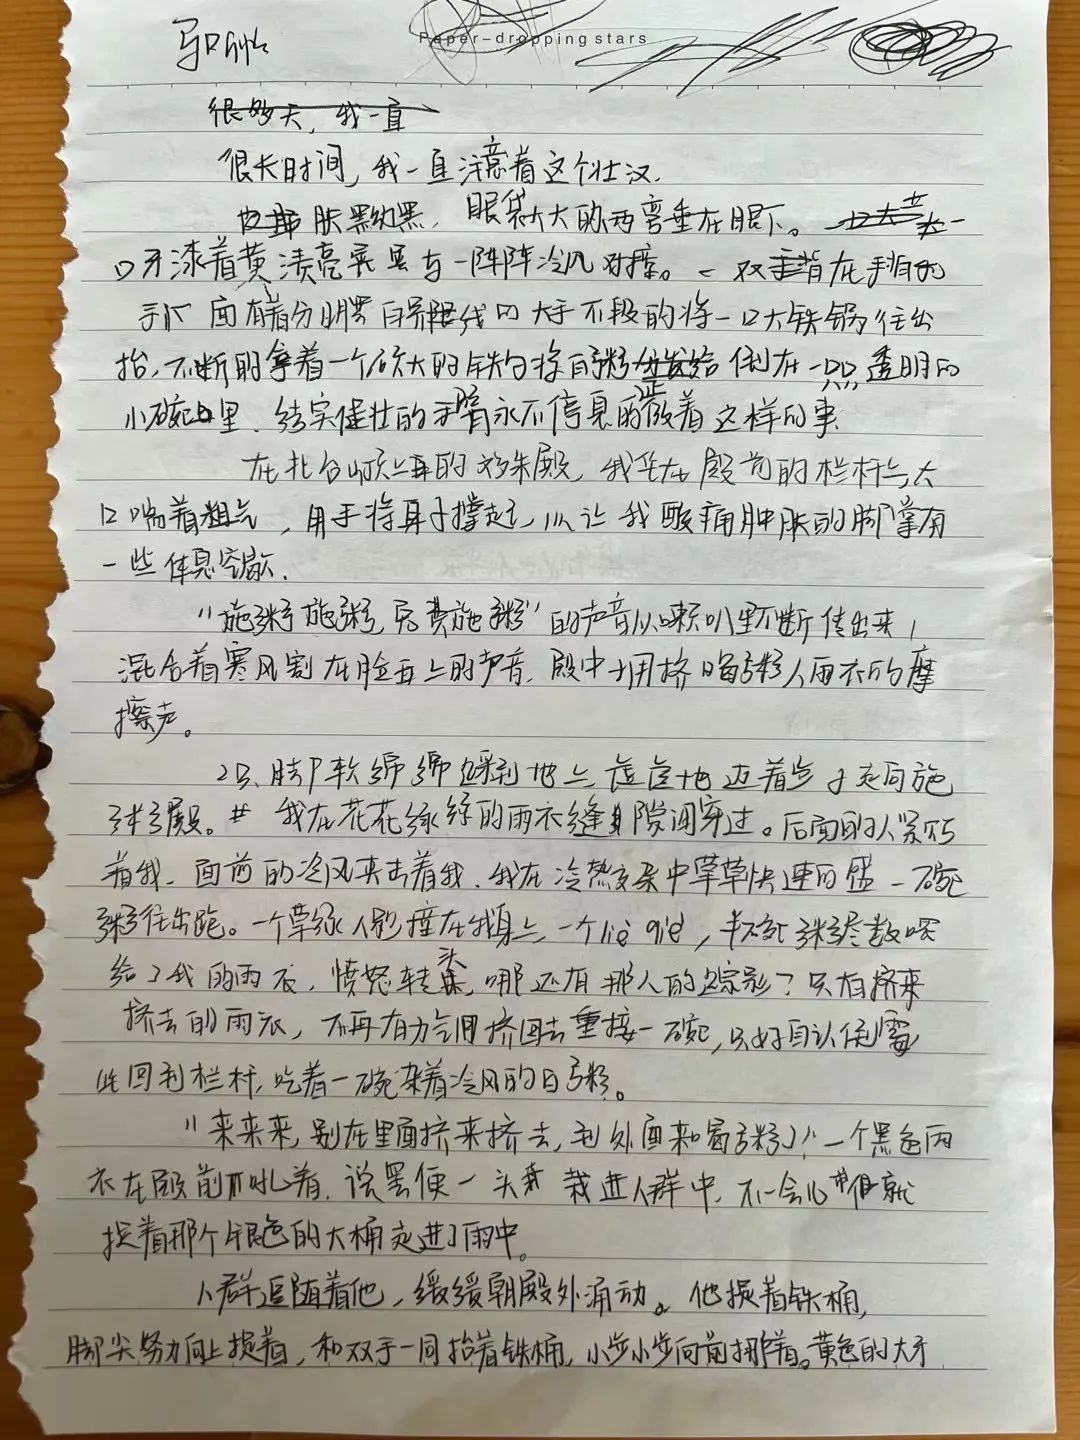 Paper-dropping stars
很多天，我一直
很长时间，我一直注意着这个壮汉.
皮肤黑黝黑，眼袋大大的两弯垂在眼下。一
口牙漆着黄渍亮晃晃与一阵阵冷风对撞。一双手背在手背和
手心面有着分明黑白界限线的大手不段的将一口大铁锅往出
抬,不断的拿着一个硕大的铁勺将白粥倒在一只只透明的
小碗里.结实健壮的手臂永不停息的做着这样的事.
在北台山顶上的文殊殿，我坐在殿前的栏杆上大
口喘着粗气，用手将身子撑起，以让我酸痛肿胀的脚掌有
一些休息空歇.
"施粥施粥,免费施粥"的声音从喇叭里不断传出来，
混合着寒风割在脸上的声音.殿中拥挤喝粥人雨衣的摩
擦声。
2只脚软绵绵踩到地上虚虚地迈着步子走向施
粥殿。我在花花绿绿的雨衣缝隙间穿过。后面的人紧巧
着我.面前的冷风夹击着我.我在冷热交杂中草草快速的盛一碗
粥往出跑。一个草绿人影撞在我身上,一个liè qiè，半碗粥尽数喂
给了我的雨衣，愤怒转头,哪还有那人的踪影？只有挤来
挤去的雨衣，不再有力气回挤回去重接一碗,只好自认倒霉
回到栏杆,吃着一碗杂着冷风的白粥。
"来来来,别在里面挤来挤去,到外面来喝粥!"一个黑色雨
衣在殿前吼着.说罢便一头栽进人群中.不一会儿便就
提着那个银色的大桶走进了雨中。
人群追随着他，缓缓朝殿外涌动。他提着铁桶,
脚尖努力向上提着，和双手一同抬着铁桶,小步小步向前挪着。黄色的大牙